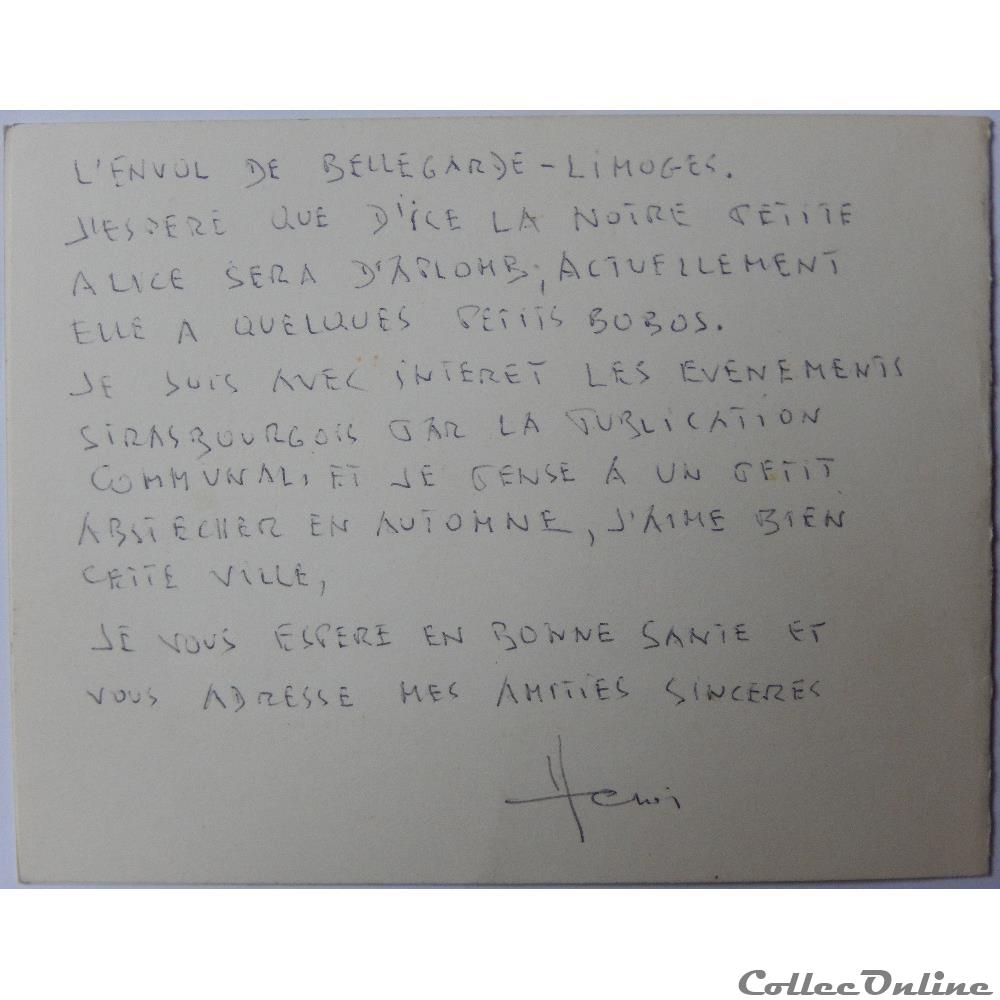 L'ENVOL DE BELLEGARDE-LIMOGES.
J'ESPERE QUE D'ICE LA NOTRE PETITE
ALICE SERA D'APLOMB, ACTUELLEMENT
ELLE A QUELQUES PETITS BOBOS.
JE SUIS AVEC INTERET LES EVENEMENTS
STRASBOURGOIS PAR LA PUBLICATION
COMMUNALE ET JE PENSE A UN PETIT
ABSTECHER EN AUTOMNE, J'AIME BIEN
CETTE VILLE,
JE VOUS ESPERE EN BONNE SANTE ET
VOUS ADRESSE MES AMITIES SINCERES
Henri
CollecOnline